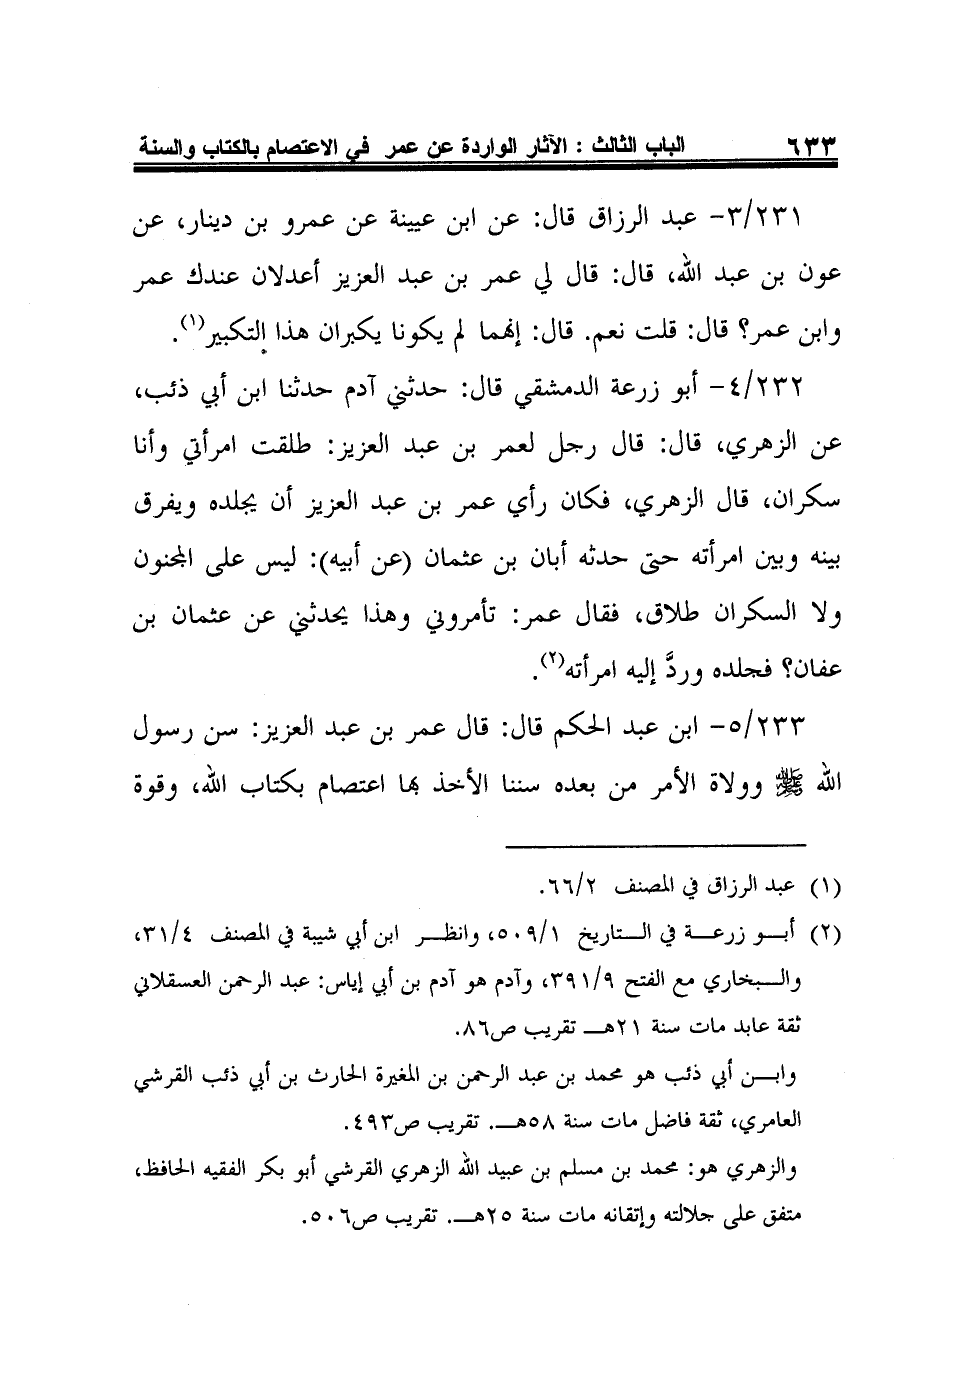 الباب الثالث : الآثار الواردة عن عمر في الاعتصام بالكتاب والسنة ٦٣٣
٣/٢٣١- عبد الرزاق قال: عن ابن عيينة عن عمرو بن دينار، عن
عون بن عبد الله، قال: قال لي عمر بن عبد العزيز أعدلان عندك عمر
وابن عمر؟ قال: قلت نعم. قال: إنهما لم يكونا يكبران هذا التكبير(١).
٤/٢٣٢- أبو زرعة الدمشقي قال: حدثني آدم حدثنا ابن أبي ذئب،
عن الزهري، قال: قال رجل لعمر بن عبد العزيز: طلقت امرأتي وأنا
سكران، قال الزهري، فكان رأي عمر بن عبد العزيز أن يجلده ويفرق
بينه وبين امرأته حتى حدثه أبان بن عثمان (عن أبيه): ليس على المجنون
ولا السكران طلاق، فقال عمر: تأمروني وهذا يحدثني عن عثمان بن
عفان؟ فجلده وردَّ إليه امرأته(٢).
٥/٢٣٣- ابن عبد الحكم قال: قال عمر بن عبد العزيز: سن رسول
الله ﷺ وولاة الأمر من بعده سننا الأخذ بها اعتصام بكتاب الله، وقوة
(١) عبد الرزاق في المصنف ٦٦/٢.
(٢) أبو زرعة في التاريخ ٥٠٩/١، وانظر ابن أبي شيبة في المصنف ٣١/٤،
والبخاري مع الفتح ٣٩١/٩، وآدم هو آدم بن أبي إياس: عبد الرحمن العسقلاني
ثقة عابد مات سنة ٢١هـ تقريب ص٨٦.
وابن أبي ذئب هو محمد بن عبد الرحمن بن المغيرة الحارث بن أبي ذئب القرشي
العامري، ثقة فاضل مات سنة ٥٨هـ. تقريب ص٤٩٣.
والزهري هو: محمد بن مسلم بن عبيد الله الزهري القرشي أبو بكر الفقيه الحافظ،
متفق على جلالته وإتقانه مات سنة ٢٥هـ. تقريب ص٥٠٦.